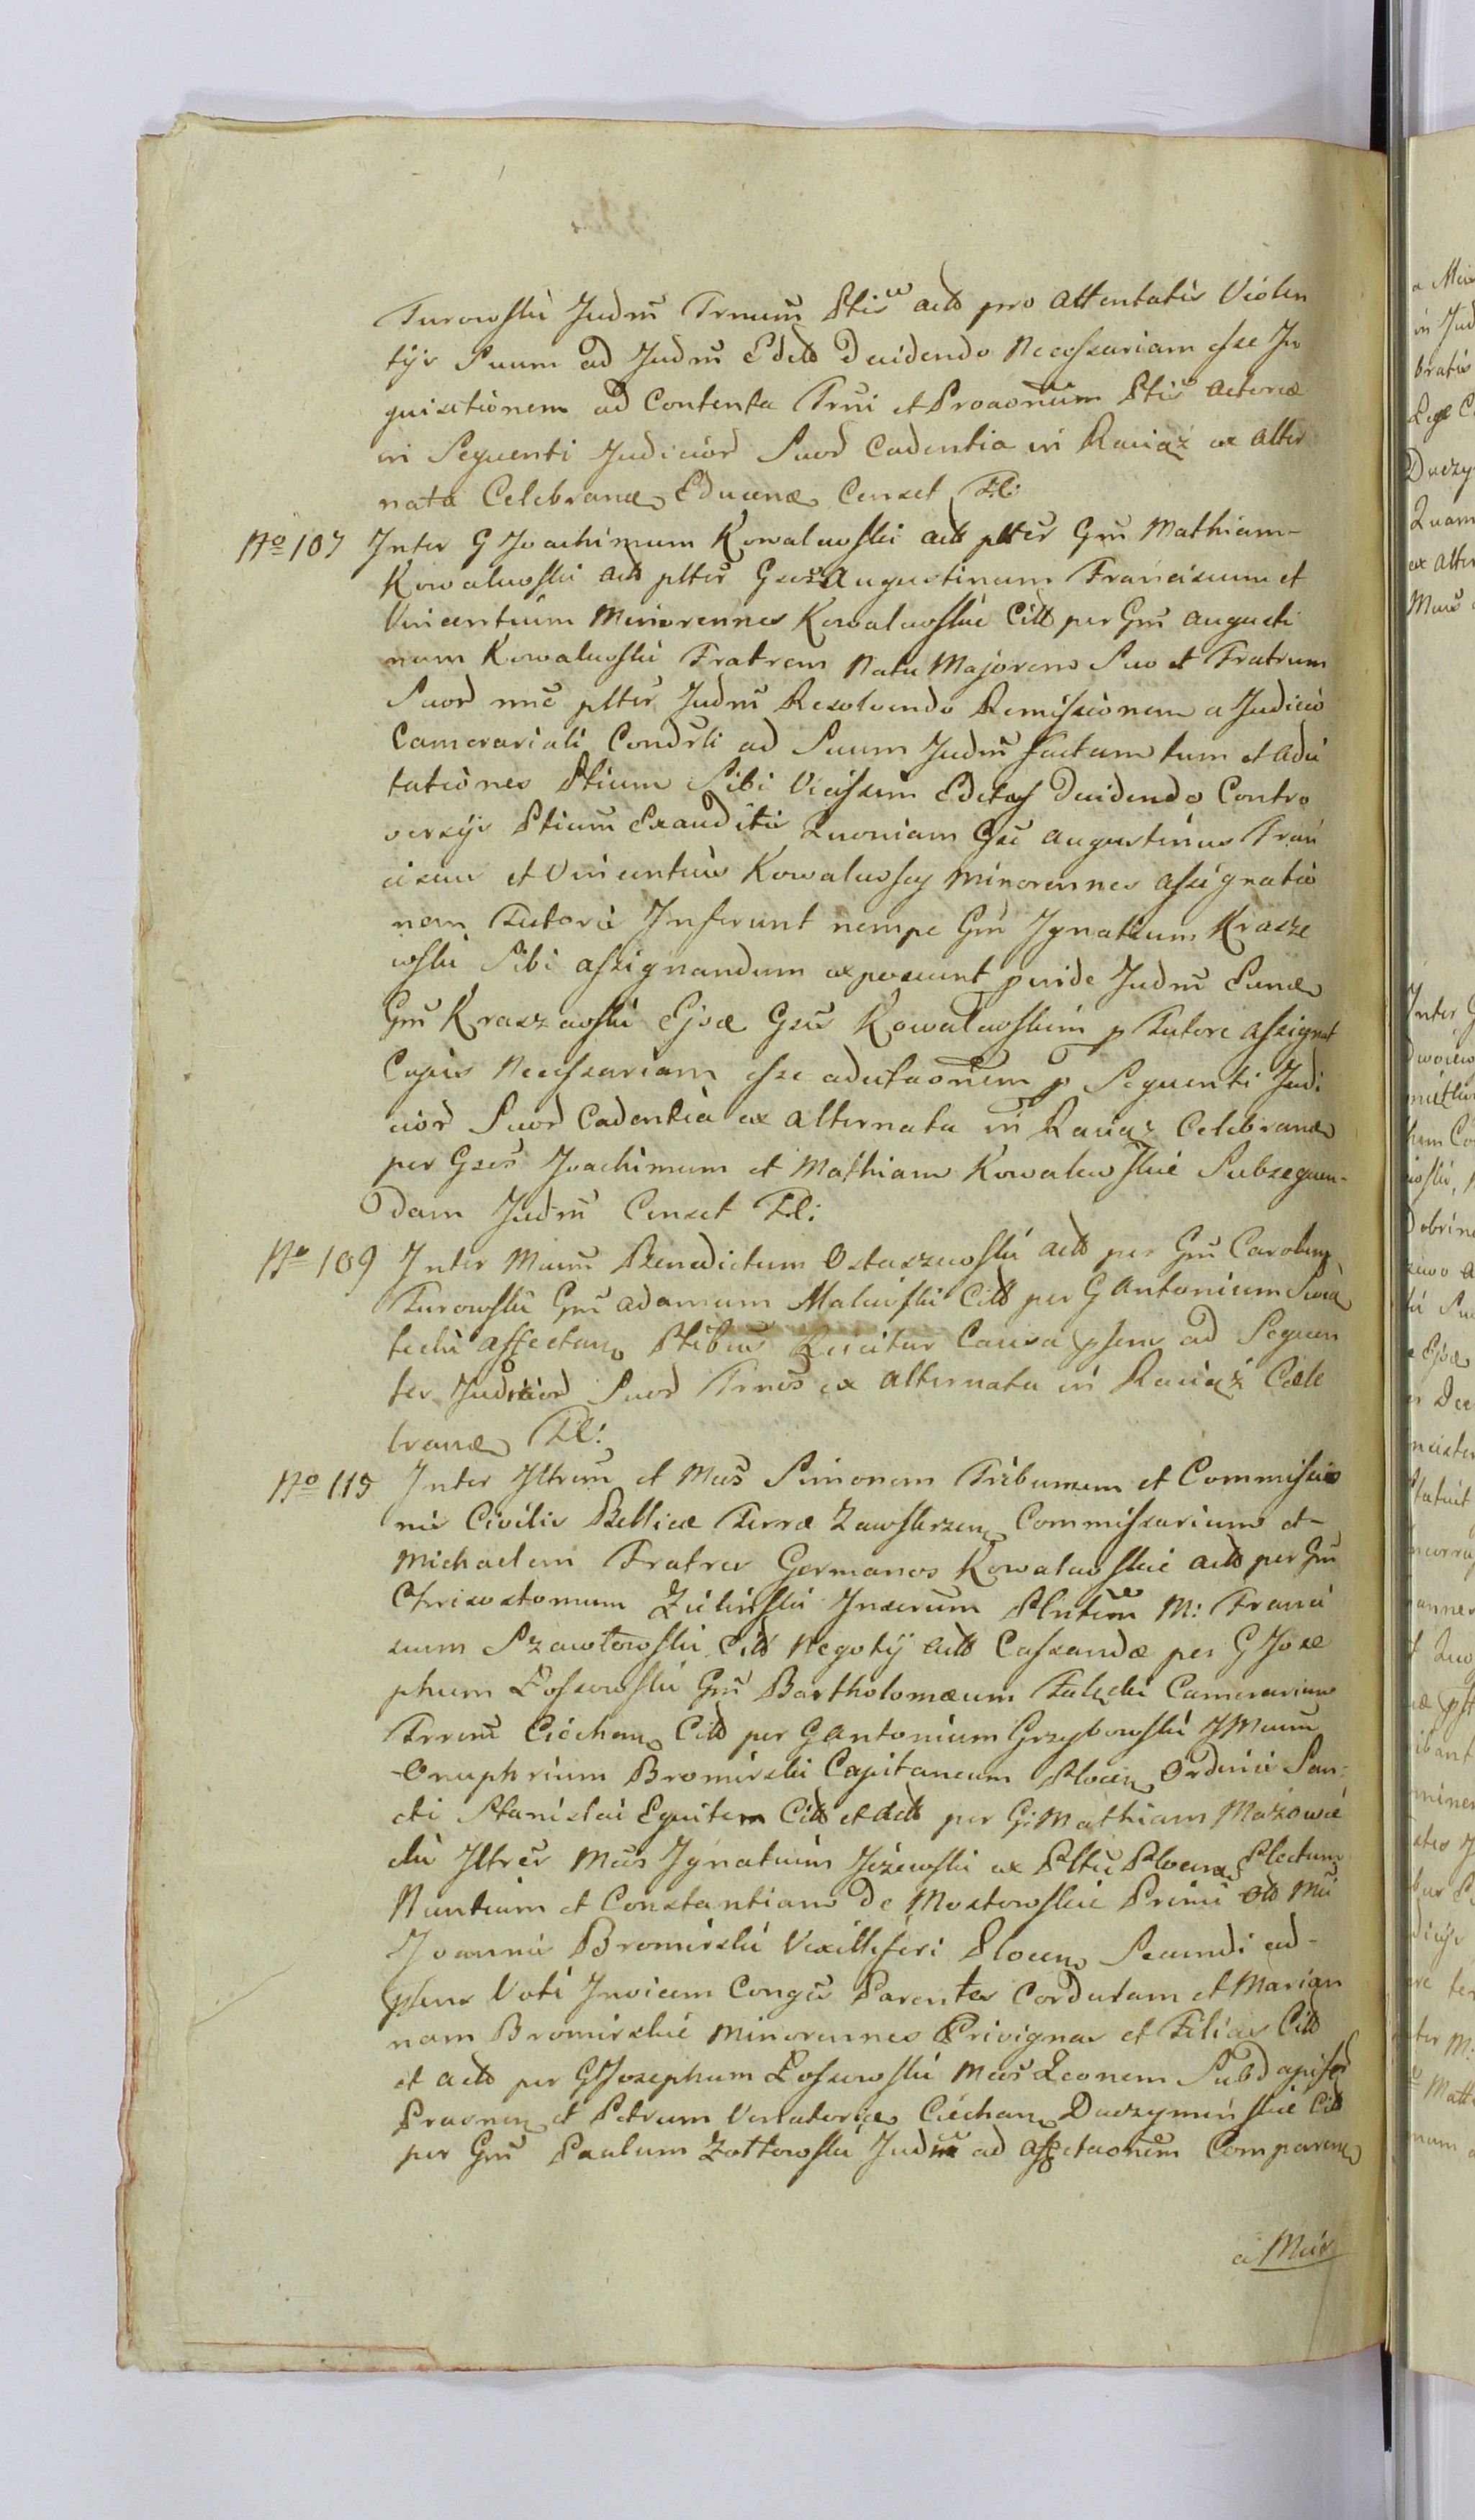 Turowski Judm Trnum Ptis actt pro attentatis Violen
tijs Suum ad Judm Edctt Decidendo Necessariam esse In
quisitionem ad Contenta Trni et Proaonum Ptis Actoreæ
in Sequenti Judicior Suor Cadentia in Raciąż ex Alter
nata Celebranæ Educenæ Censet Fl:
No 107 Inter G Joachimum Kowalewski actt plter Gm Mathiam-
Kowalewski actt plter Gsos Augustinum Franciscum et
Vincentium Minorennes Kowalewskie Citt per Gm Augusti
num Kowalewski Fratrem Natu Majorem Suo et Fratrum
Suor nne plter Judm Resolvendo Remissionem a Judicio
Camerariali Condsli ad Suum Judm factam tum et Adci
tationes Ptium Sibi Vicissim Edctas Decidendo Contro
versijs Ptium Exauditis Quoniam Gsi Augustinus Fran
ciscus et Vincentius Kowalewscy Minorennes Assignatio
nem Tutoris Inferunt nempe Gm Ignatium Krasze
wski Sibi assignandum exposcunt proide Judm Eunde
Gm Kraszewski Ejsde Gsis Kowalewskim p Tutore assignat
Cujus Necessariam esse adcitaonem p Sequenti Judi
cior Suor Cadentia ex alternata in Raciąż Celebranæ
per Gsos Joachimum et Mathiam Kowalewskie Subsequen-
dam Judm Censet Fl:
No 109 Inter Mcum Benedictum Ostaszewski actt per Gm Carolum
Turowski Gm Adamum Malewski Citt per G Antonium Swia
tecki affectan Ptibus Reicitur Causa psens ad Sequen
tes Judicior Suor Trnos ex alternata in Raciąż Cele
branæ Fl:
No 115 Inter Iltrem et Mcos Simonem Tribunum et Commissio
nis Civilis Bellicæ Terræ Zawskrzen Commissarium et-
Michaelem Fratres Germanos Kowalewskie actt per Gm
Chrisostomum Zieliński Inserum Plntem M: Franci
scum Szawłowski Citt Negotij actt Cassandæ per G Jose
phum Łossowski Gm Bartholomæum Falęcki Camerarium
Trrem Ciechan Citt per G Antonium Grzybowski I Mcum
Onuphrium Bromirski Capitaneum Plocen Ordinis San-
cti Stanislai Equitem Citt et actt per G: Mathiam Mazowie
cki Iltres Mcos Ignatium Jeżewski ex Pltu Plocen Electum
Nuntium et Constantiam de Mostowskie Primi Ott Mci
Joannis Bromirski Vexilliferi Plocen Secundi ad-
psens Voti Invicem Conges Parentes Cordulam et Marian
nam Bromirskie Minorennes Privignas et Filias Citt
et actt per G Josephum Łossowski Mcos Leonem Subdapifer
Prasnen et Petrum Venatorices Ciechan Duczymińskie Citt
per Gm Paulum Zottowski Judm ad Affectaonem Comparen
a Mcis